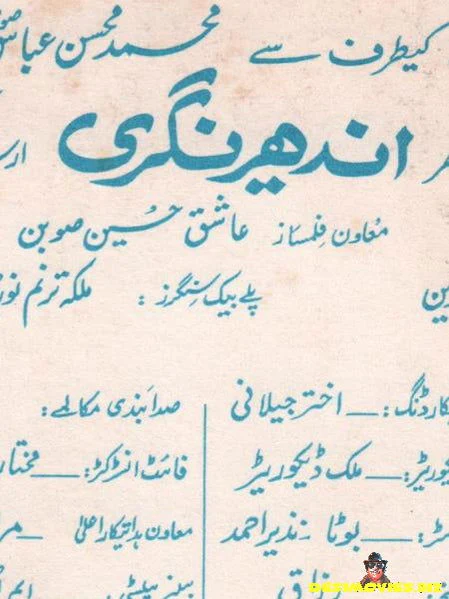 کیطرف سے محمد محسن عباس
اندھیر نگری
معاون فلمساز عاشق حسین صوبن
پلے بیک سنگرز: ملکہ ترنم نور
کارڈنگ: اختر جیلانی
صدا بندی مکالمے:
ملک ڈیکوریٹر
فائٹ انسٹرکٹر: مختار
بوٹا نذیر احمد
معاون ہدایتکار اعلیٰ
DESIMOVIES.BIZ